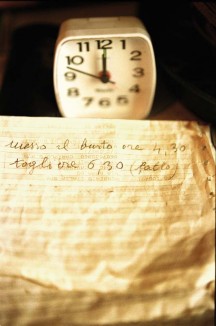 12
11
10
9
8
7
6
5
4
3
2
1
messo il busto ore 4,30
togliere 6,30 (fatto)